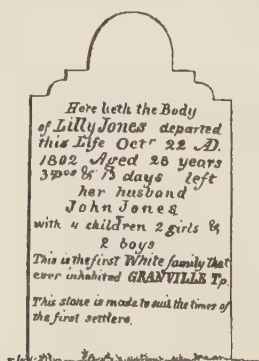 Here lieth the Body
of Lilly Jones departed
this Life Octr 22 AD.
1802 Aged 28 years
& days left
her husband
John Jones
with 4 children 2 girls &
2 boys
This is the first White family that
ever inhabited GRANVILLE Tp.
This stone is made to suit the times of
the first settlers.